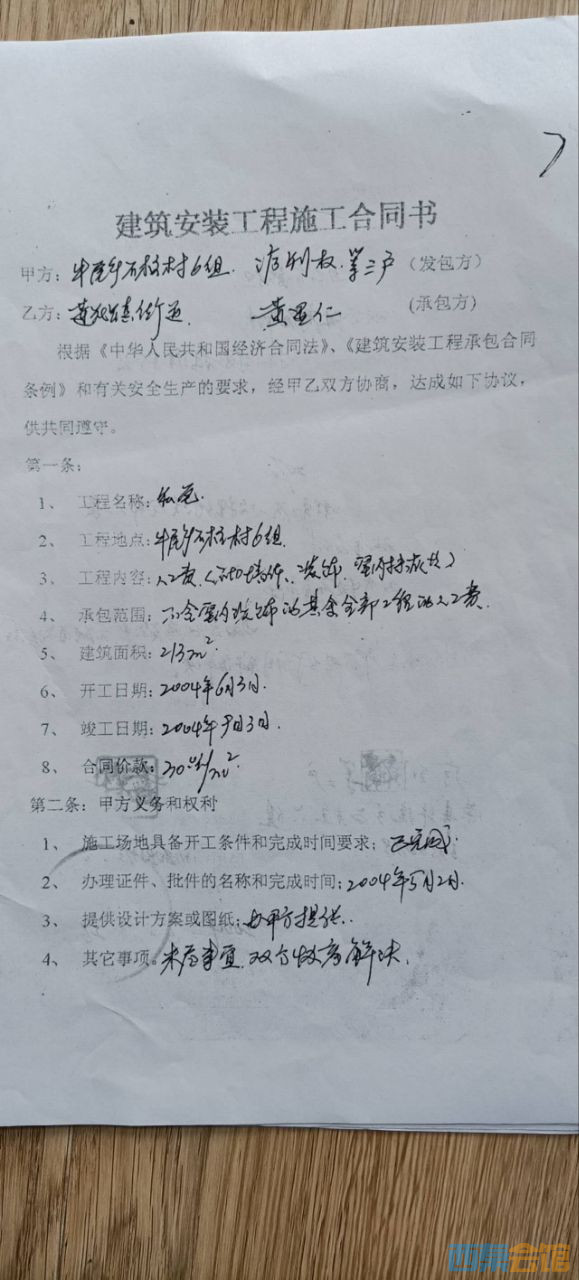 建筑安装工程施工合同书
甲方：牛尾乡石柱村6组. 权. 等三户 （发包方）
乙方： 黄 仁 (承包方)
根据《中华人民共和国经济合同法》、《建筑安装工程承包合同
条例》和有关安全生产的要求，经甲乙双方协商，达成如下协议，
供共同遵守。
第一条：
1、 工程名称：私宅.
2、 工程地点：牛尾乡石柱村6组.
3、 工程内容：人工费
4、 承包范围：不含室内装饰的其余全部工程的人工费.
5、 建筑面积：213m².
6、 开工日期：2004年6月3日.
7、 竣工日期：2004年9月3日.
8、 合同价款：/m²
第二条：甲方义务和权利
1、 施工场地具备开工条件和完成时间要求：已完成.
2、 办理证件、批件的名称和完成时间：2004年5月2日.
3、 提供设计方案或图纸：由甲方提供.
4、 其它事项。未尽事宜.双方协商解决.
西祠会馆